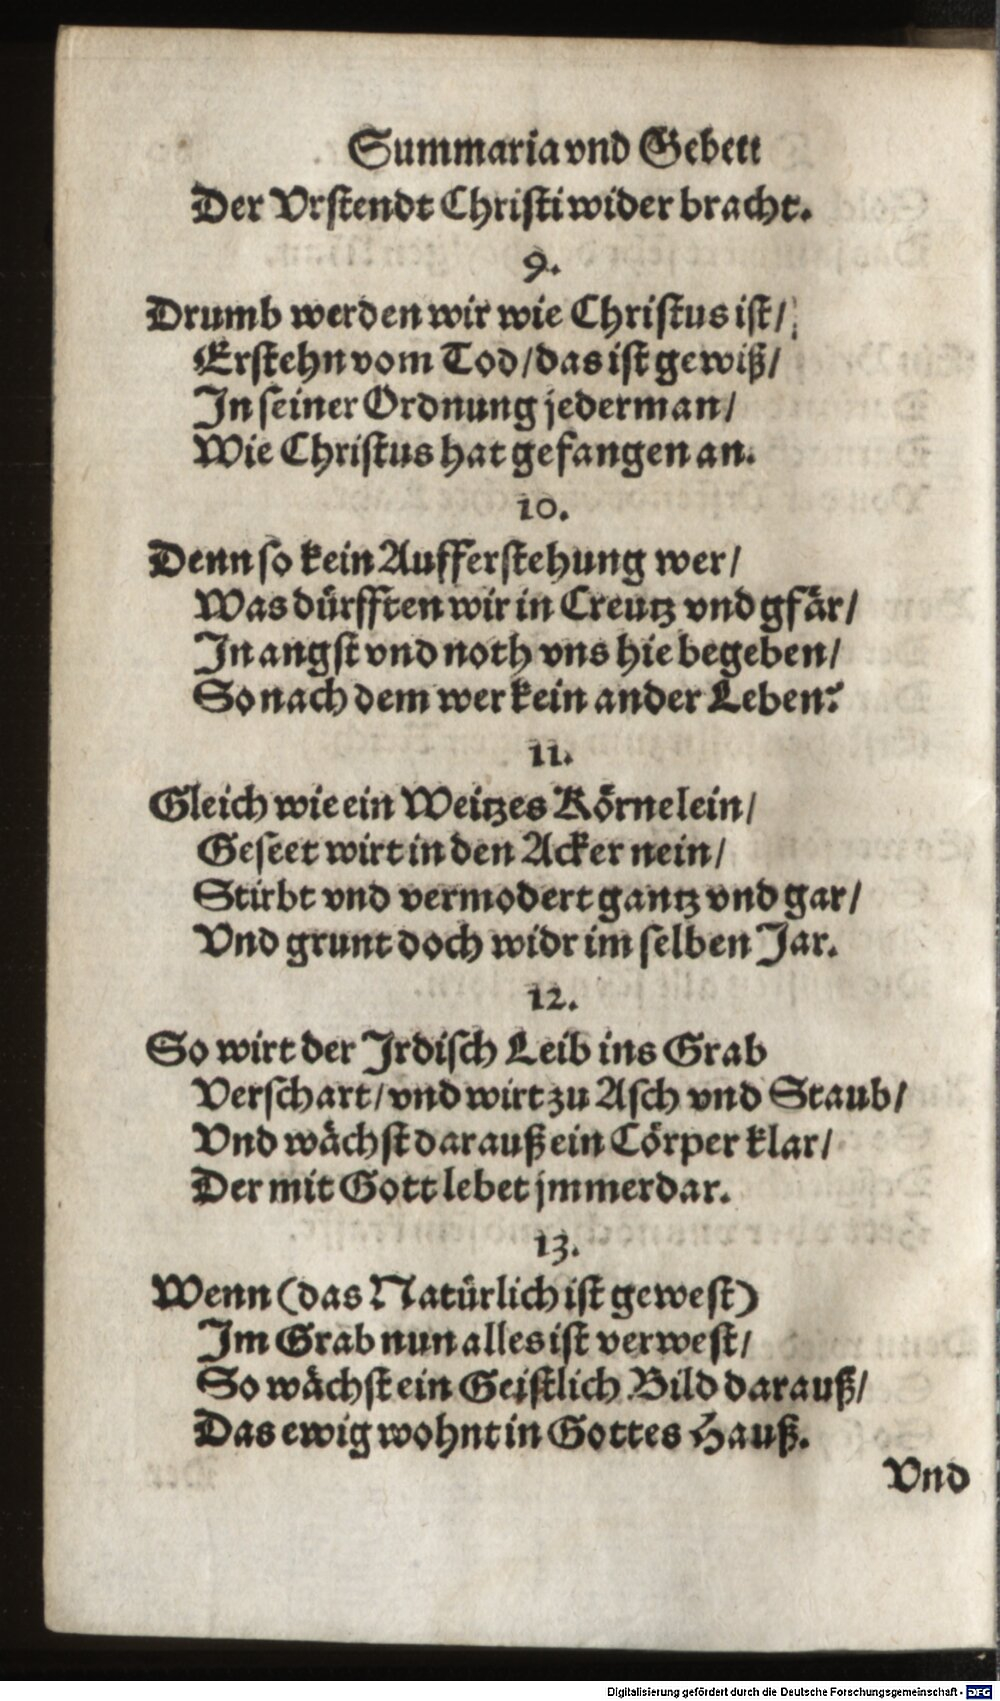 Summaria vnd Gebett
Der Vrstendt Christi wider bracht.
9.
Drumb werden wir wie Christus ist/
Erstehn vom Tod/das ist gewiß/
In seiner Ordnung jederman/
Wie Christus hat gefangen an.
10.
Denn so kein Aufferstehung wer/
Was dürfften wir in Creutz vnd gfär/
In angst vnd noth vns hie begeben/
So nach dem wer kein ander Leben?
11.
Gleich wie ein Weitzes Körnelein/
Geseet wirt in den Acker nein/
Stirbt vnd vermodert gantz vnd gar/
Vnd grunt doch widr im selben Jar.
12.
So wirt der Irdisch Leib ins Grab
Verschart/vnd wirt zu Asch vnd Staub/
Vnd wächst darauß ein Cörper klar/
Der mit Gott lebet jmmerdar.
13.
Wenn (das Natürlich ist gewest)
Im Grab nun alles ist verwest/
So wächst ein Geistlich Bild darauß/
Das ewig wohnt in Gottes Hauß.
Vnd
Digitalisierung gefördert durch die Deutsche Forschungsgemeinschaft - DFG